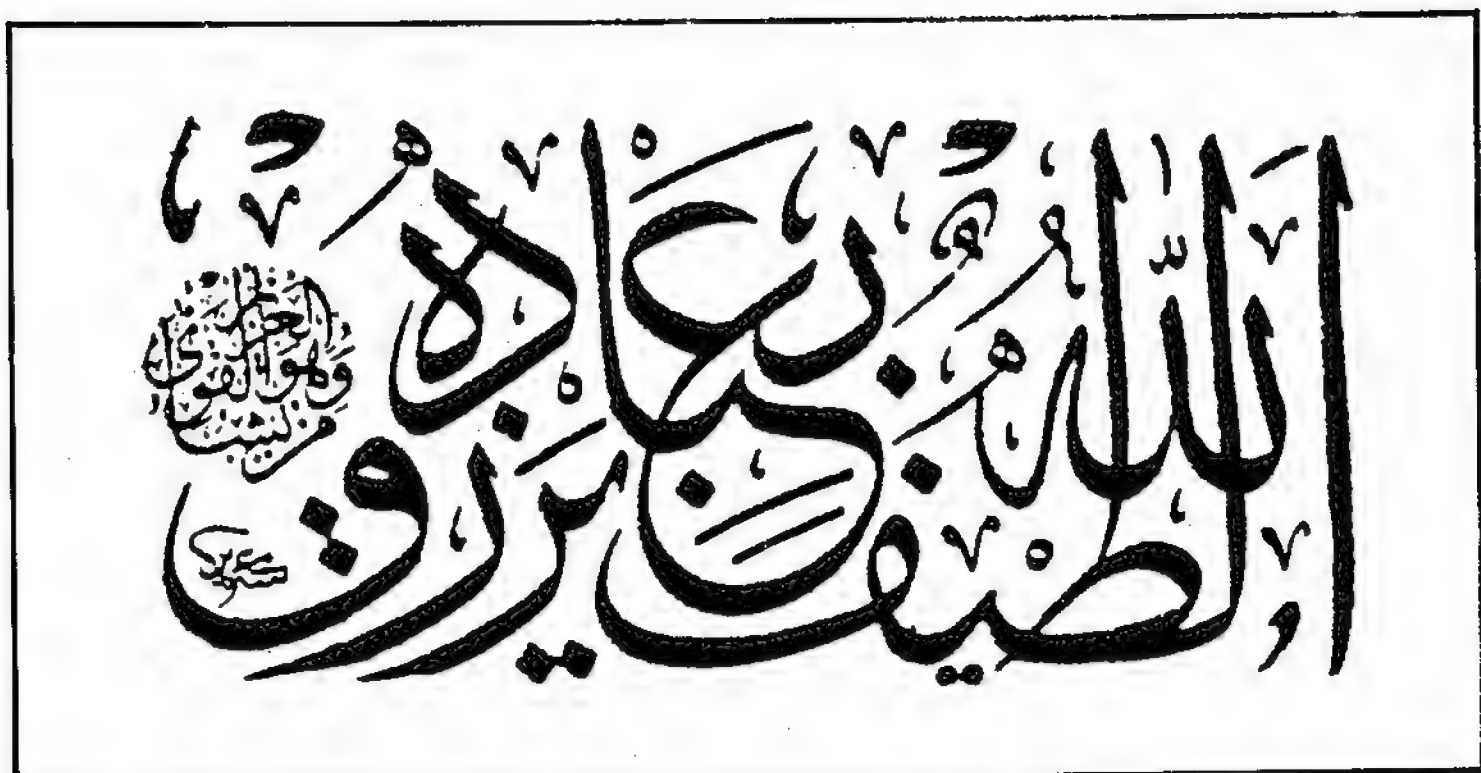 الله لطيف بعباده يرزق
من يشاء وهو القوي العزيز